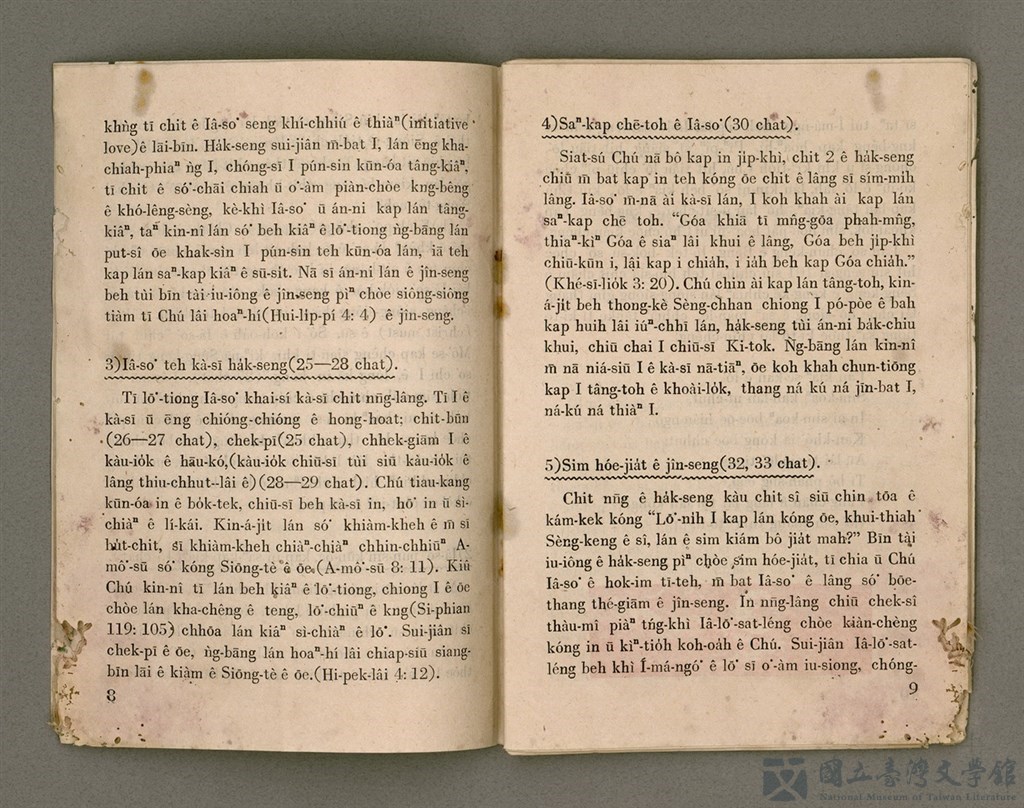 khǹg tī chit ê Iâ-so͘ seng khí-chhiú ê thiàⁿ(initiative
love)ê lāi-bīn. Ha̍k-seng sui-jiân m̄-bat I, lán ēng kha-
chiah-phiaⁿ ǹg I, chóng-sī I pún-sin kūn-óa tâng-kiâⁿ,
tī chit ê só͘-chāi chiah ū o͘-àm piàn-chòe kng-bêng
ê khó-lêng-sèng, kè-khì Iâ-so͘ ū án-ni kap lán tâng-
kiâⁿ, taⁿ kin-nî lán só͘ beh kiâⁿ ê lō͘-tiong ǹg-bāng lán
put-sî ōe khak-sìn I pún-sin teh kūn-óa lán, iā teh
kap lán saⁿ-kap kiâⁿ ê sū-si̍t. Nā sī án-ni lán ê jîn-seng
beh tùi bīn tài iu-iông ê jîn-seng pìⁿ chòe siông-siông
tiàm tī Chú lâi hoaⁿ-hí(Hui-li̍p-pí 4: 4) ê jîn-seng.
3)Iâ-so͘ teh kà-sī ha̍k-seng(25—28 chat).
Tī lō͘-tiong Iâ-so͘ khai-sí kà-sī chit nn̄g-lâng. Tī I ê
kà-sī ū ēng chióng-chióng ê hong-hoat; chit-būn
(26—27 chat), chek-pī(25 chat), chhek-giām I ê
kàu-io̍k ê hāu-kó,(kàu-io̍k chiū-sī tùi siū kàu-io̍k ê
lâng thiu-chhut--lâi ê)(28—29 chat). Chú tiau-kang
kūn-óa in ê bo̍k-tek, chiū-sī beh kà-sī in, hō͘ in ū sì-
chiàⁿ ê lí-kái. Kin-á-ji̍t lán só͘ khiàm-kheh ê m̄ sī
bu̍t-chit, sī khiàm-kheh chiàⁿ-chiàⁿ chhin-chhiūⁿ A-
mô͘-sū só͘ kóng Siōng-tè ê ōe.(A-mô͘-sū 8: 11). Kiû
Chú kin-nî tī lán beh kiâⁿ ê lō͘-tiong, chiong I ê ōe
chòe lán kha-chêng ê teng, lō͘-chiūⁿ ê kng(Si-phian
119: 105) chhōa lán kiâⁿ sì-chiàⁿ ê lō͘. Sui-jiân sī
chek-pī ê ōe, ǹg-bāng lán hoaⁿ-hí lâi chiap-siū siang-
bīn lāi ê kiàm ê Siōng-tè ê ōe.(Hi-pek-lâi 4: 12).
8
4)Saⁿ-kap chē-toh ê Iâ-so͘ (30 chat).
Siat-sú Chú nā bô kap in ji̍p-khì, chit 2 ê ha̍k-seng
chiū m̄ bat kap in teh kóng ōe chit ê lâng sī sím-mih
lâng. Iâ-so͘ m̄-nā ài kà-sī lán, I koh khah ài kap lán
saⁿ-kap chē toh. “Góa khiā tī mn̂g-gōa phah-mn̂g,
thiaⁿ-kìⁿ Góa ê siaⁿ lâi khui ê lâng, Góa beh ji̍p-khì
chiū-kūn i, lâi kap i chia̍h, i ia̍h beh kap Góa chia̍h.”
(Khé-sī-lio̍k 3: 20). Chú chin ài kap lán tâng-toh, kin-
á-ji̍t beh thong-kè Sèng-chhan chiong I pó-pòe ê bah
kap huih lâi iúⁿ-chhī lán, ha̍k-seng tùi án-ni ba̍k-chiu
khui, chiū chai I chiū-sī Ki-tok. Ǹg-bāng lán kin-nî
m̄ nā niá-siū I ê kà-sī nā-tiāⁿ, ōe koh khah chun-tiōng
kap I tâng-toh ê khoài-lo̍k, thang ná kú ná jīn-bat I,
ná-kú ná thiàⁿ I.
5)Sim hóe-jia̍t ê jîn-seng(32, 33 chat).
Chit nn̄g ê ha̍k-seng kàu chit sî siū chin tōa ê
kám-kek kóng “Lō͘-nih I kap lán kóng ōe, khui-thiah
Sèng-keng ê sî, lán ê sim kiám bô jia̍t mah?” Bīn tài
iu-iông ê ha̍k-seng pìⁿ chòe sim hóe-jia̍t, tī chia ū Chú
Iâ-so͘ ê hok-im tī-teh, m̄ bat Iâ-so͘ ê lâng só͘ bōe-
thang thé-giām ê jîn-seng. In nn̄g-lâng chiū chek-sî
thàu-mî piàⁿ tńg-khì Iâ-lō͘-sat-léng chòe kiàn-chèng
kóng in ū kìⁿ-tio̍h koh-oa̍h ê Chú. Sui-jiân Iâ-lō͘-sat-
léng beh khì Í-má-ngó͘ ê lō͘ sī o͘-àm iu-siong, chóng-
9
國立臺灣文學館
National Museum of Taiwan Literature